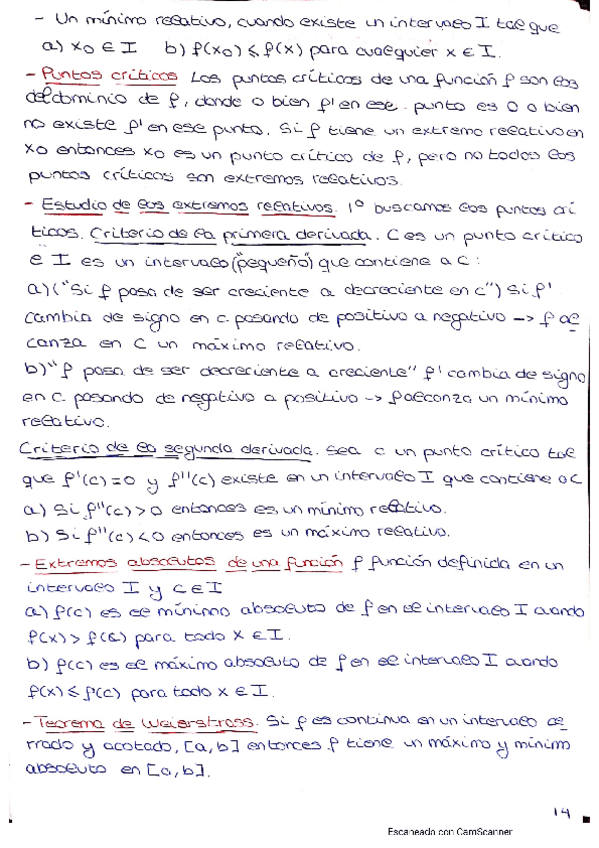 - Un mínimo relativo, cuando existe un intervalo I tal que
a) x0 ∈ I  b) f(x0) ≤ f(x) para cualquier x ∈ I.
- Puntos críticos Los puntos críticos de una función f son los
del dominio de f, donde o bien f' en ese punto es 0 o bien
no existe f' en ese punto. Si f tiene un extremo relativo en
x0 entonces x0 es un punto crítico de f, pero no todos los
puntos críticos son extremos relativos.
- Estudio de los extremos relativos. 1º buscamos los puntos crí
ticos. Criterio de la primera derivada. C es un punto crítico
e I es un intervalo ("pequeño") que contiene a C :
a) ("Si f pasa de ser creciente a decreciente en c") Si f'
cambia de signo en c pasando de positivo a negativo -> f al
canza en C un máximo relativo.
b) "f pasa de ser decreciente a creciente" f' cambia de signo
en c pasando de negativo a positivo -> f alcanza un mínimo
relativo.
Criterio de la segunda derivada. Sea c un punto crítico tal
que f'(c)=0 y f''(c) existe en un intervalo I que contiene a C
a) Si f''(c) > 0 entonces es un mínimo relativo.
b) Si f''(c) < 0 entonces es un máximo relativo.
- Extremos absolutos de una función f función definida en un
intervalo I y C ∈ I
a) f(c) es el mínimo absoluto de f en el intervalo I cuando
f(x) > f(c) para todo x ∈ I.
b) f(c) es el máximo absoluto de f en el intervalo I cuando
f(x) ≤ f(c) para todo x ∈ I.
- Teorema de Weierstrass. Si f es continua en un intervalo ce
rrado y acotado, [a,b] entonces f tiene un máximo y mínimo
absoluto en [a,b].
14
Escaneado con CamScanner